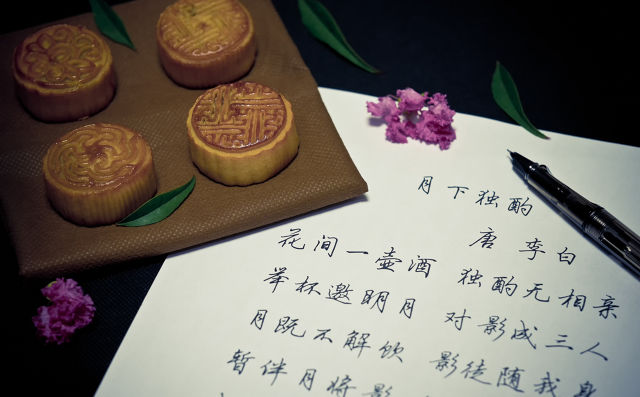 月下独酌
唐 李白
花间一壶酒 独酌无相亲
举杯邀明月 对影成三人
月既不解饮 影徒随我身
暂伴月将影